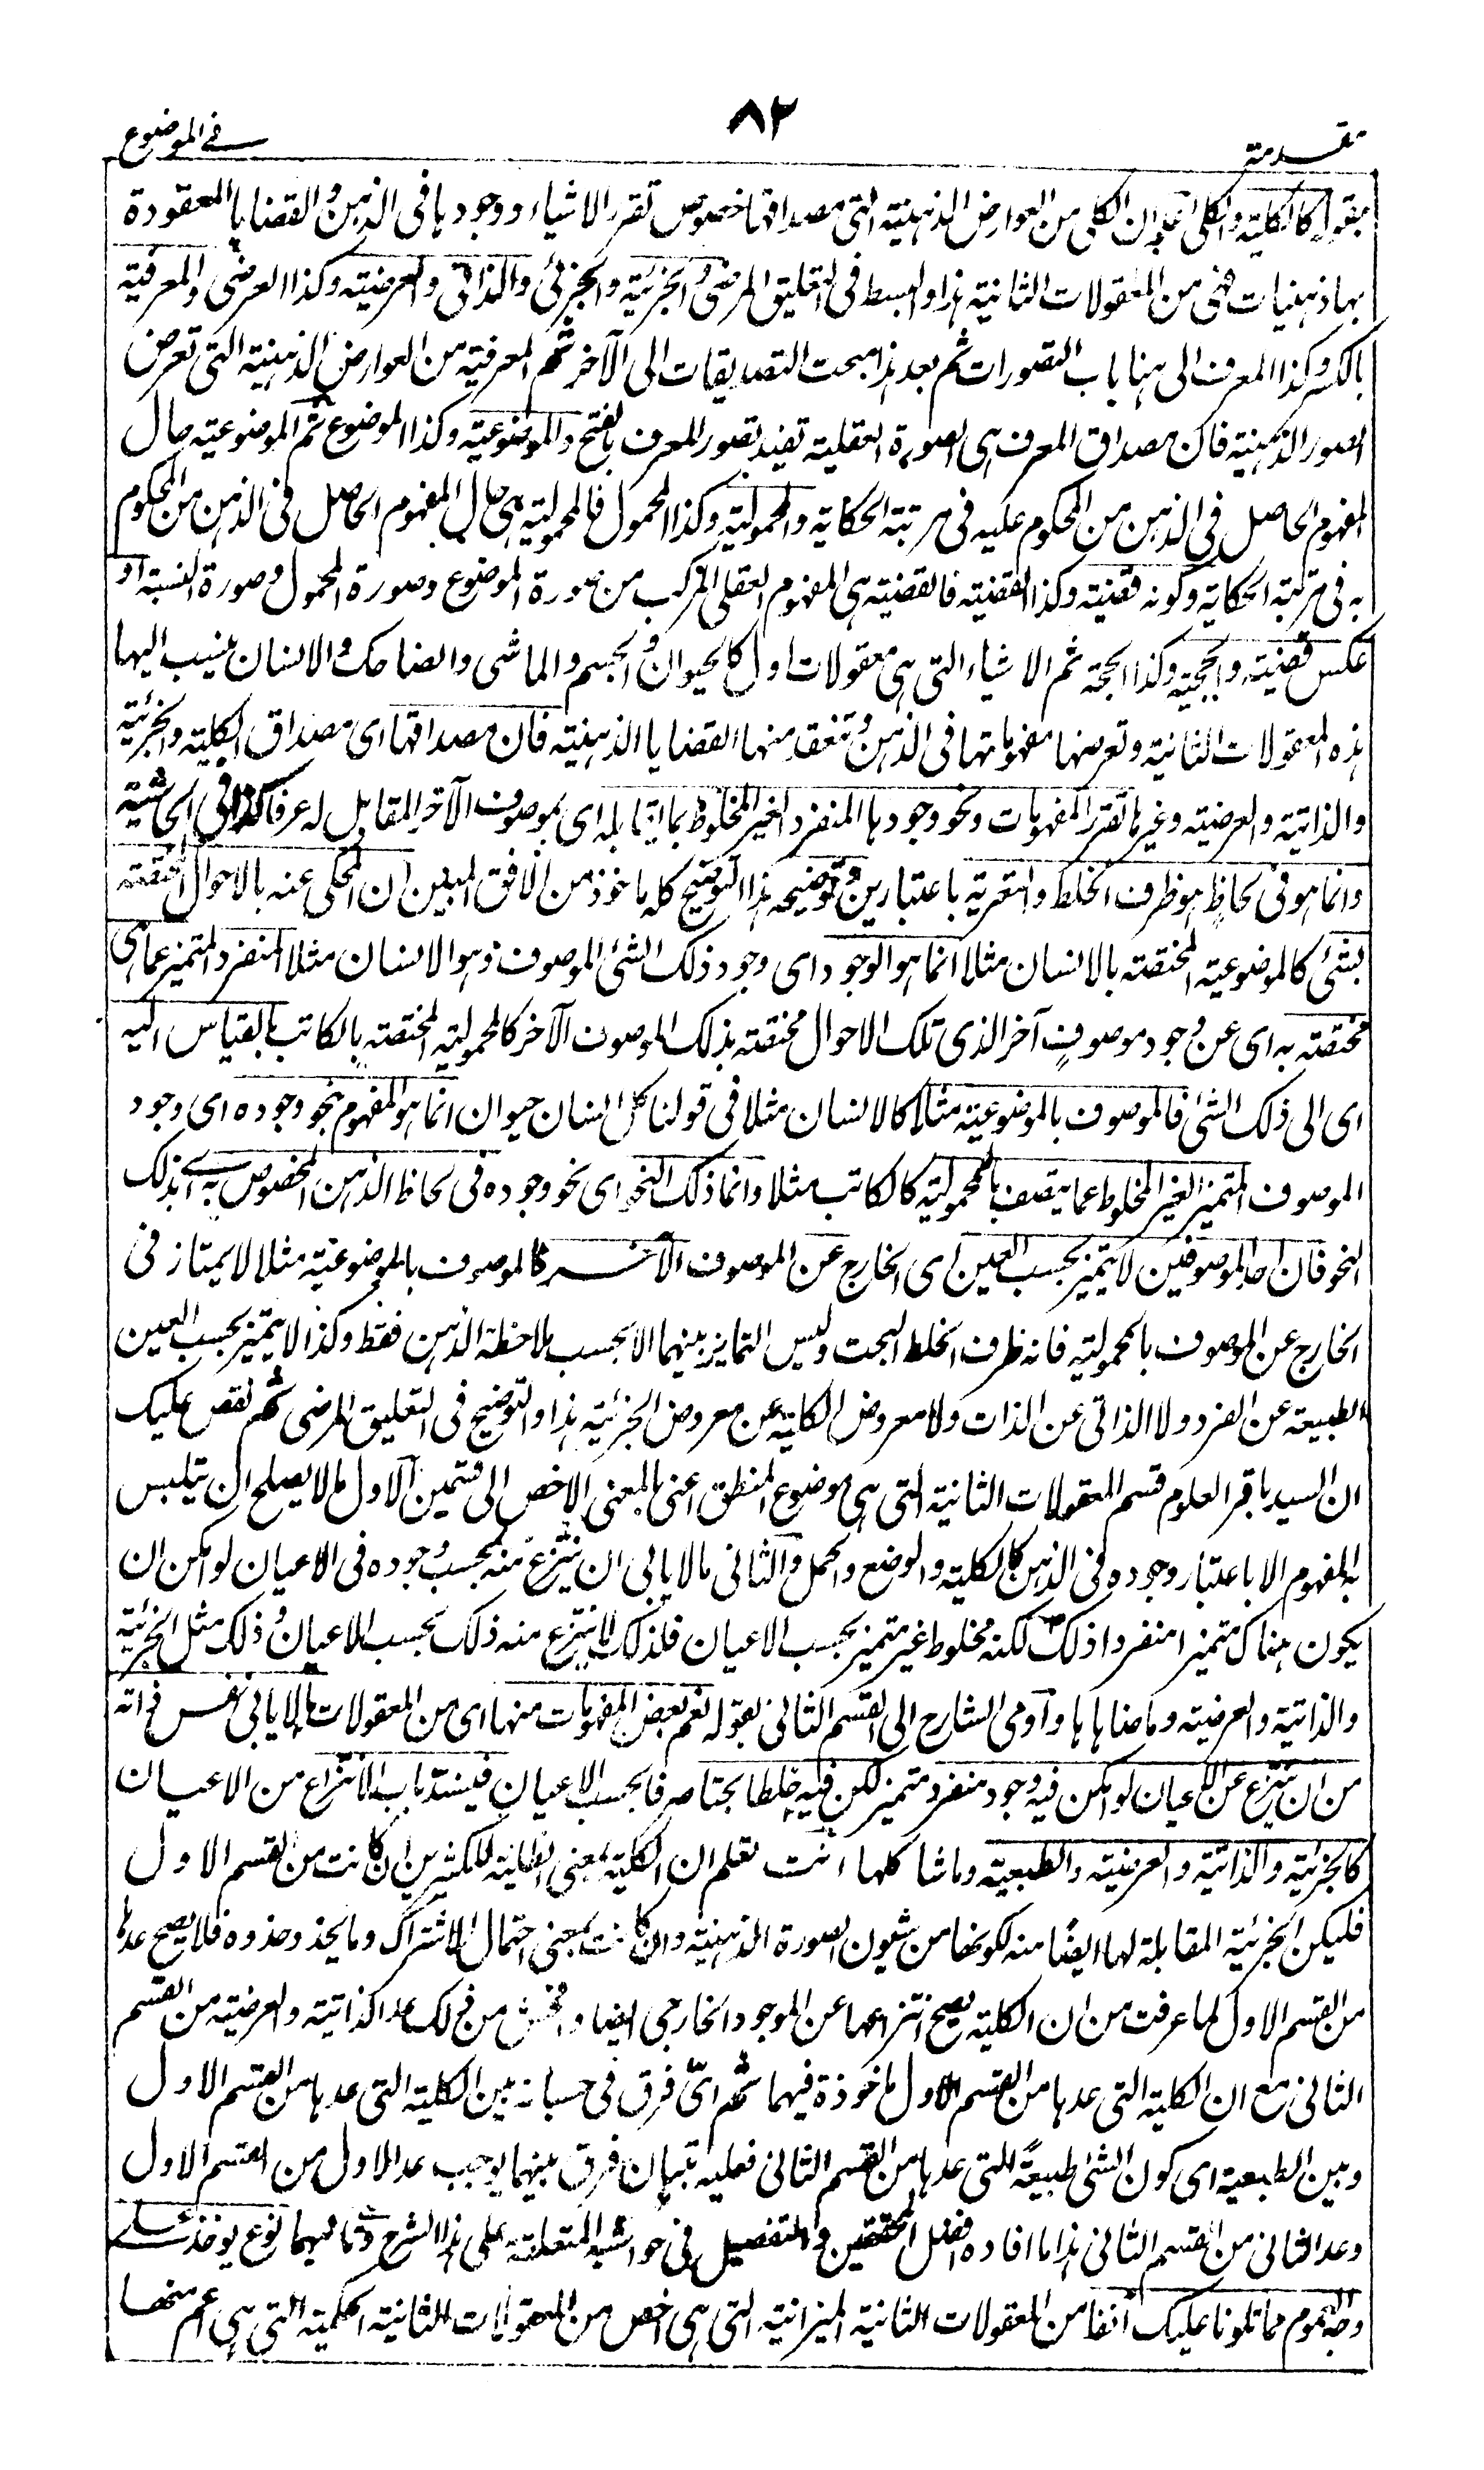 ٨٢
مقدمة
في الموضوع
بقوله كالكلية والكلي اعلم ان الكلي من العوارض الذهنية التي مصداقها خصوص تقرر الاشياء ووجودها في الذهن والقضايا المعقودة
بها ذهنيات فهي من المعقولات الثانية هذا والبسط في التعليق المرضي والجزئية والجزئي والذاتي والعرضية وكذا العرضي والمعرفية
بالكسر وكذا المعرف الى هنا باب التصورات ثم بعد هذا مبحث التصديقات الى الآخر ثم المعرفية من العوارض الذهنية التي تعرض
الصور الذهنية فان مصداق المعرف هي الصورة العقلية تفيد تصور المعرف بالفتح والموضوعية وكذا الموضوع ثم الموضوعية حال
المفهوم الحاصل في الذهن من المحكوم عليه في مرتبة الحكاية والمحمولية وكذا المحمول فالمحمولية هي حال المفهوم الحاصل في الذهن من المحكوم
به في مرتبة الحكاية وكونه قضية وكذا القضية فالقضية هي المفهوم العقلي المركب من صورة الموضوع وصورة المحمول وصورة النسبة او
عكس قضية والحجية وكذا الحجة ثم الاشياء التي هي معقولات اول كالحيوان والجسم والماشي والضاحك والانسان ينسب اليها
هذه المعقولات الثانية وتعرضها مفهوماتها في الذهن وتنعقد منها القضايا الذهنية فان مصداقها اي مصداق الكلية والجزئية
والذاتية والعرضية وغيرها تقرر المفهومات ونحو وجودها المنفرد الغير المخلوط بما يقابله اي بموصوف الآخر المقابل له عرفا كذا في الحاشية
وانما هو في لحاظ هو ظرف الخلط والتعرية باعتبارين وتوضيحه هذا التوضيح كله ماخوذ من الافق المبين ان المحكي عنه بالاحوال المختصة
بشئ كالموضوعية المختصة بالانسان مثلا انما هو الوجود اي وجود ذلك الشئ الموصوف وهو الانسان مثلا المنفرد المتميز عما هي
مختصة به اي عن وجود موصوف آخر الذي تلك الاحوال مختصة بذلك الموصوف الآخر كالمحمولية المختصة بالكاتب بالقياس اليه
اي الى ذلك الشئ فالموصوف بالموضوعية مثلا كالانسان مثلا في قولنا كل انسان حيوان انما هو المفهوم بنحو وجوده اي وجود
الموصوف المتميز الغير المخلوط عما يتصف بالمحمولية كالكاتب مثلا وانما ذلك النحو اي نحو وجوده في لحاظ الذهن المخصوص به اي بذلك
النحو فان احد الموصوفين لا يتميز بحسب العين اي الخارج عن الموصوف الآخر كالموصوف بالموضوعية مثلا لا يمتاز في
الخارج عن الموصوف بالمحمولية فانه ظرف الخلط البحت وليس التمايز بينهما الا بحسب ملاحظة الذهن فقط وكذا لا يتميز بحسب العين
الطبيعة عن الفرد ولا الذاتي عن الذات ولا معروض الكلية عن معروض الجزئية هذا والتوضيح في التعليق المرضي ثم نقص عليك
ان السيد باقر العلوم قسم المعقولات الثانية التي هي موضوع المنطق اعني بالمعنى الاخص الى قسمين الاول ما لا يصلح ان يتلبس
به المفهوم الا باعتبار وجوده في الذهن كالكلية والوضع والحمل والثاني ما لا يابى ان ينتزع منه بحسب وجوده في الاعيان لو امكن ان
يكون هناك متميزا منفردا ذلك لكنه مخلوط غير متميز بحسب الاعيان فلذلك لا ينتزع منه ذلك بحسب الاعيان وذلك مثل الجزئية
والذاتية والعرضية وما ضاهاها وآومى الشارح الى القسم الثاني بقوله نعم بعض المفهومات منها اي من المعقولات ما لا يابى نفس ذاته
من ان ينتزع عن الاعيان لو امكن فيه وجود منفرد متميز لكن فيه خلطا بحتا صرفا بحسب الاعيان فينسد باب الانتزاع من الاعيان
كالجزئية والذاتية والعرضية والطبيعية وما شاكلها انت تعلم ان الكلية بمعنى المطابقة للكثيرين ان كانت من القسم الاول
فليكن الجزئية المقابلة لها ايضا منه لكونها من شيون الصورة الذهنية وان كانت بمعنى احتمال الاشتراك وما يحذو حذوه فلا يصح عدها
من القسم الاول لما عرفت من ان الكلية يصح انتزاعها عن الموجود الخارجي ايضا وافحش من ذلك عد الذاتية والعرضية من القسم
الثاني مع ان الكلية التي عدها من القسم الاول ماخوذة فيهما ثم اي فرق في حسبانه بين الكلية التي عدها من القسم الاول
وبين الطبعية اي كون الشئ طبيعة التي عدها من القسم الثاني فعليه تبيان فرق بينهما يوجب عد الاول من القسم الاول
وعد الثاني من القسم الثاني هذا ما افاده افضل المحققين والتفصيل في حواشيه المتعلقة على هذا الشرح وما فيهما نوع يوخذ
وجه العموم مما تلونا عليك آنفا من المعقولات الثانية الميزانية التي هي اخص من المعقولات الثانية الحكمية التي هي اعم منها